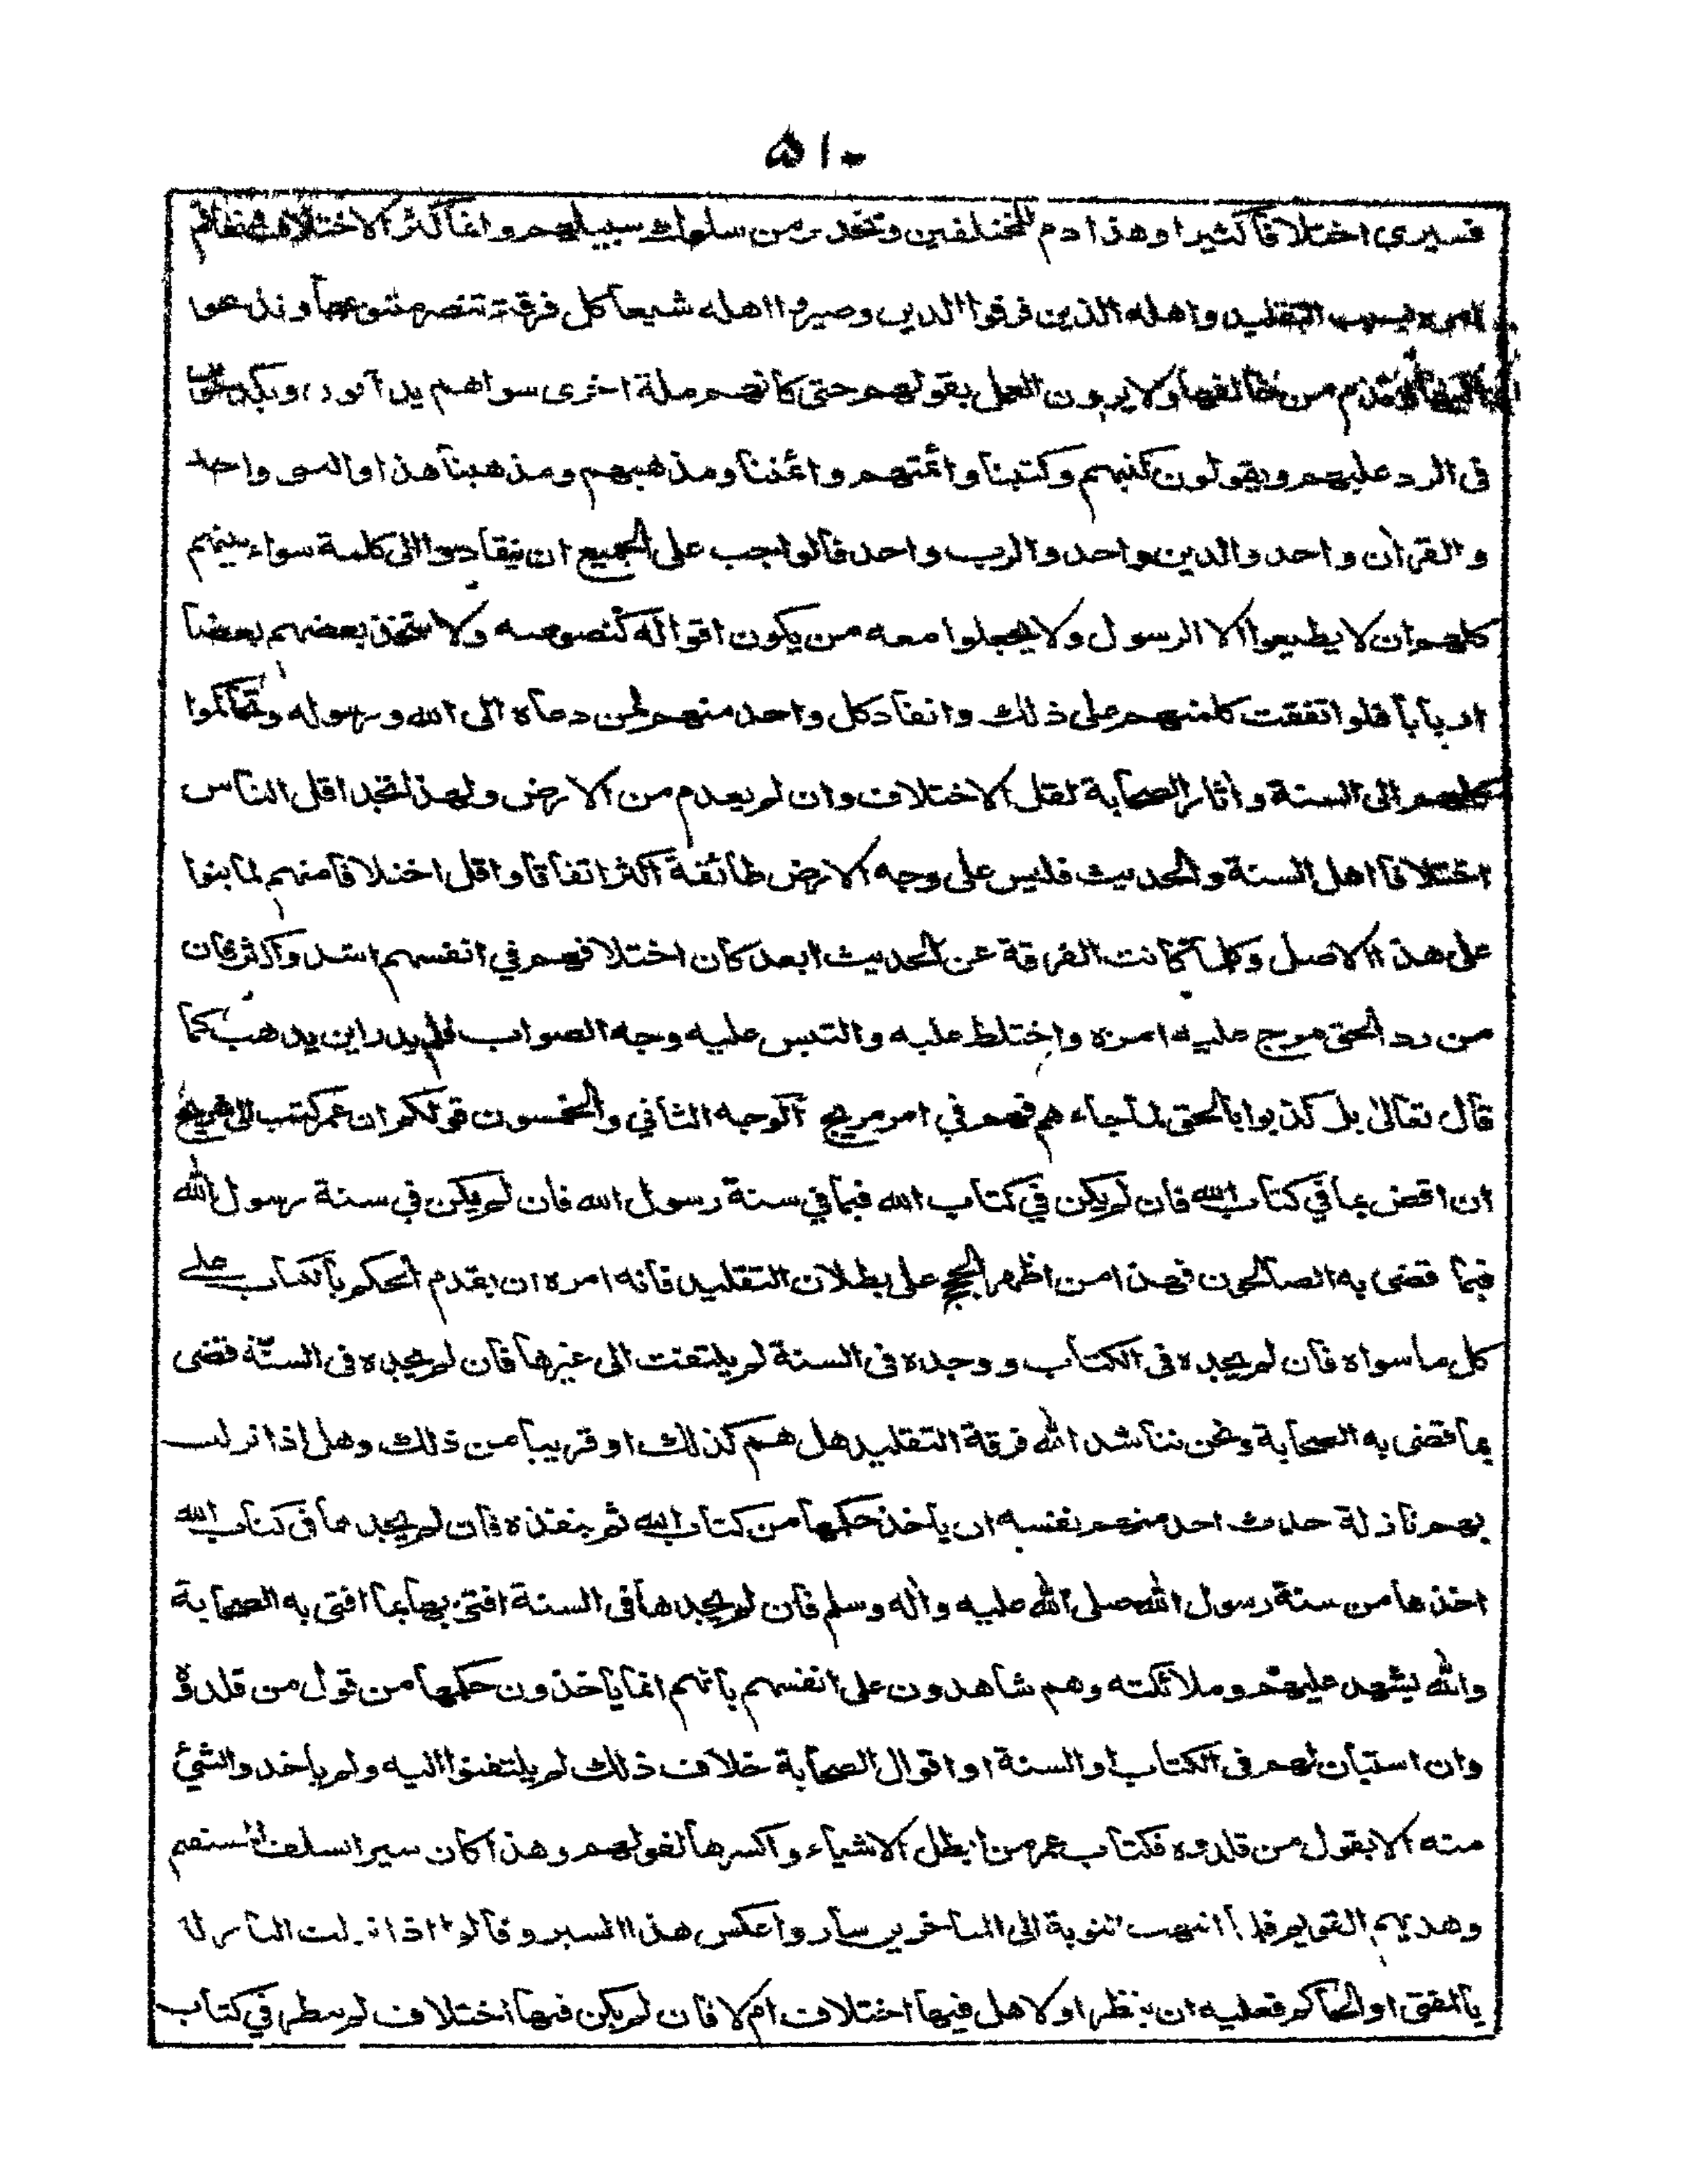 ۵۱۰
فسيرى اختلافا كثيرا وهذا ذم للمختلفين وتحذير من سلوك سبيلهم وانما كثر الاختلاف وتفاقم
امره بسبب التقليد واهله الذين فرقوا الدين وصيروا اهله شيعا كل فرقة تنصر متبوعها وتدعوا
اليه وتذم من خالفها ولا يرون العمل بقولهم حتى كانهم ملة اخرى سواهم يدأبون ويكدحون
فى الرد عليهم ويقولون كتبهم وكتبنا وائمتهم وائمتنا ومذهبهم ومذهبنا هذا والنبى واحد
والقرأن واحد والدين واحد والرب واحد فالواجب على الجميع ان ينقادوا الى كلمة سواء بينهم
كلهم وان لا يطيعوا الا الرسول ولا يجعلوا معه من يكون اقواله كنصوصه ولا يتخذ بعضهم بعضا
اربابا فلو اتفقت كلمتهم على ذلك وانقاد كل واحد منهم لمن دعاه الى الله ورسوله وتحاكموا
كلهم الى السنة وأثار الصحابة لقل الاختلاف وان لم يعدم من الارض ولهذا تجد اقل الناس
اختلافا اهل السنة والحديث فليس على وجه الارض طائفة اكثر اتفاقا واقل اختلافا منهم لما بنوا
على هذا الاصل وكلما كانت الفرقة عن الحديث ابعد كان اختلافهم في انفسهم اشد واكثر فان
من رد الحق مرج عليه امره واختلط عليه والتبس عليه وجه الصواب فلم يدر اين يذهب كما
قال تعالى بل كذبوا بالحق لما جاءهم فهم في امر مريج الوجه الثاني والخمسون قولكم ان عمر كتب الى شريح
ان اقض بما في كتاب الله فان لم يكن في كتاب الله فبما في سنة رسول الله فان لم يكن في سنة رسول الله
فبما قضى به الصالحون فهذا من اظهر الحجج على بطلان التقليد فانه امره ان يقدم الحكم بالكتاب على
كل ما سواه فان لم يجده فى الكتاب ووجده فى السنة لم يلتفت الى غيرها فان لم يجده فى السنة قضى
بما قضى به الصحابة ونحن نناشد الله فرقة التقليد هل هم كذلك او قريبا من ذلك وهل اذا نزلت
بهم نازلة حدث احد منهم نفسه ان ياخذ حكمها من كتاب الله ثم ينفذه فان لم يجدها فى كتاب الله
اخذها من سنة رسول الله صلى الله عليه وأله وسلم فان لم يجدها فى السنة افتى بها بما افتى به الصحابة
والله يشهد عليهم وملائكته وهم شاهدون على انفسهم بانهم انما ياخذون حكمها من قول من قلدوه
وان استبان لهم فى الكتاب او السنة او اقوال الصحابة خلاف ذلك لم يلتفتوا اليه ولم ياخذوا لشئ
منه الا بقول من قلدوه فكتاب عمر من ابطل الاشياء واكسرها لقولهم وهذا كان سير السلف المستقيم
وهديهم القويم فلما انتهت النوبة الى المتاخرين ساروا عكس هذا السير وقالوا اذا نزلت النازلة
بالمفتى او الحاكم فعليه ان ينظر اولا هل فيها اختلاف ام لا فان لم يكن فيها اختلاف لم ينظر في كتاب